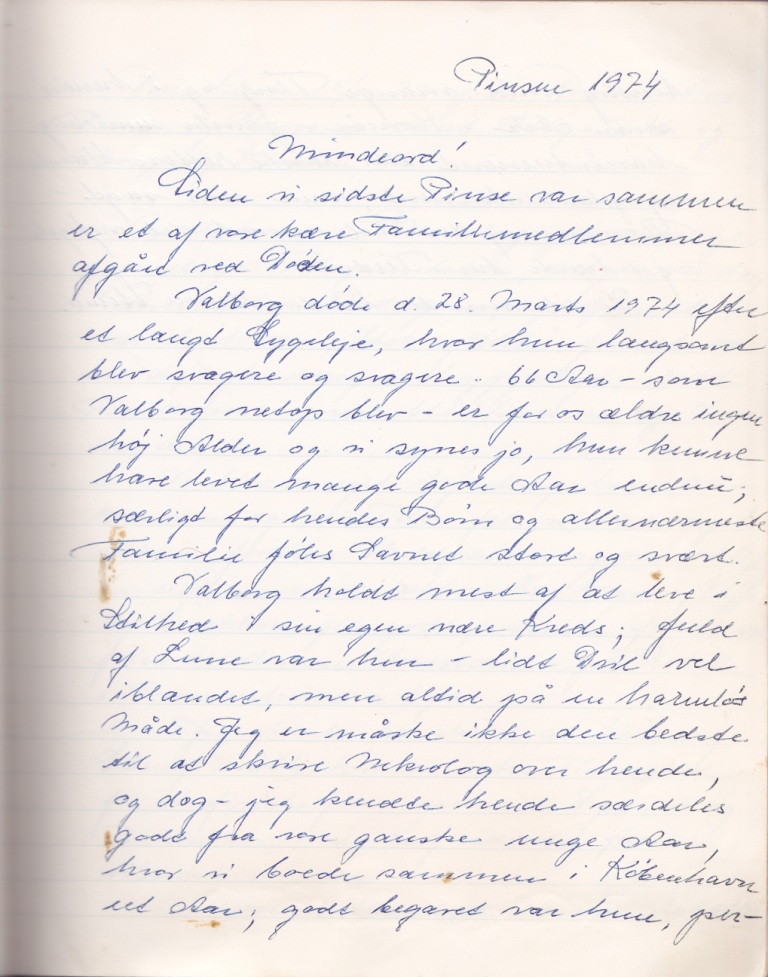 Pinsen 1974
Mindeord!
Siden vi sidste Pinse var sammen
er et af vore kære Familiemedlemmer
afgået ved Døden.
Valborg døde d. 28. Marts 1974 efter
et langt Sygeleje, hvor hun langsomt
blev svagere og svagere. 66 Aar – som
Valborg netop blev – er for os ældre ingen
høj Alder og vi synes jo, hun kunne
have levet mange gode Aar endnu;
særligt for hendes Børn og allernærmeste
Familie føles Savnet stort og svært.
Valborg holdt mest af at leve i
Stilhed i sin egen nære Kreds; fuld
af Lune var hun – lidt Dril vel
iblandet, men altid på en harmløs
Måde. Jeg er måske ikke den bedste
til at skrive Nekrolog over hende,
og dog – jeg kendte hende særdeles
godt fra vore ganske unge Aar,
hvor vi boede sammen i København
eet Aar; godt begavet var hun, per-